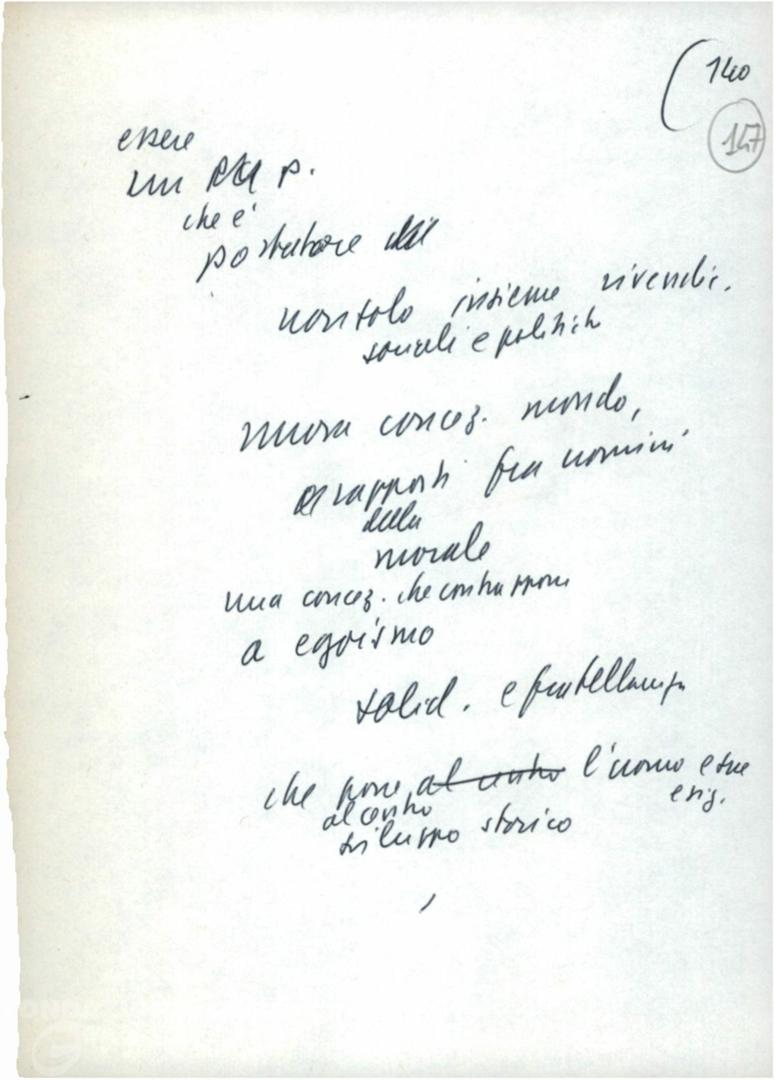 (140
147
essere
un p.
che è
portatore
non solo insieme rivendic.
sociali e politich
nuova concez. mondo,
rapporti fra uomini
della
morale
una concez. che contrappone
a egoismo
solid. e fratellanza
che pone al centro l'uomo e sue
esig.
al centro
sviluppo storico